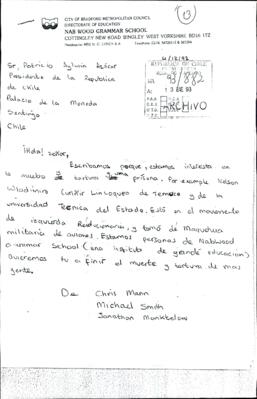 (13)
CITY OF BRADFORD METROPOLITAN COUNCIL
DIRECTORATE OF EDUCATION
NAB WOOD GRAMMAR SCHOOL
COTTINGLEY NEW ROAD BINGLEY WEST YORKSHIRE BD16 1TZ
4/12/92
Sr. Patricio Aylwin Azócar
Presidente de la Republica
de Chile
Palacio de la Moneda
Santiago
Chile
REPUBLICA DE CHILE
93/882
13 ENE 93
ARCHIVO
¡Hola! señor,
Escribamos porque, estamos interesta en
la muerto y tortura y una prisona. Por exemple Nelson
Wladimiro Curiñir Lincoqueo de Temuco y de la
universidad Tecnica del Estado. Está en el movemento
de izquierda Revolcionario, y tomó de Maquehua
militaria de aviones. Estamos personas de Nabwood
Grammar School (una instituto de grande educacion)
Queremos tu a finir el muerte y tortura de mas
gente.
De Chris Mann
Michael Smith
Jonathan Monkhelow